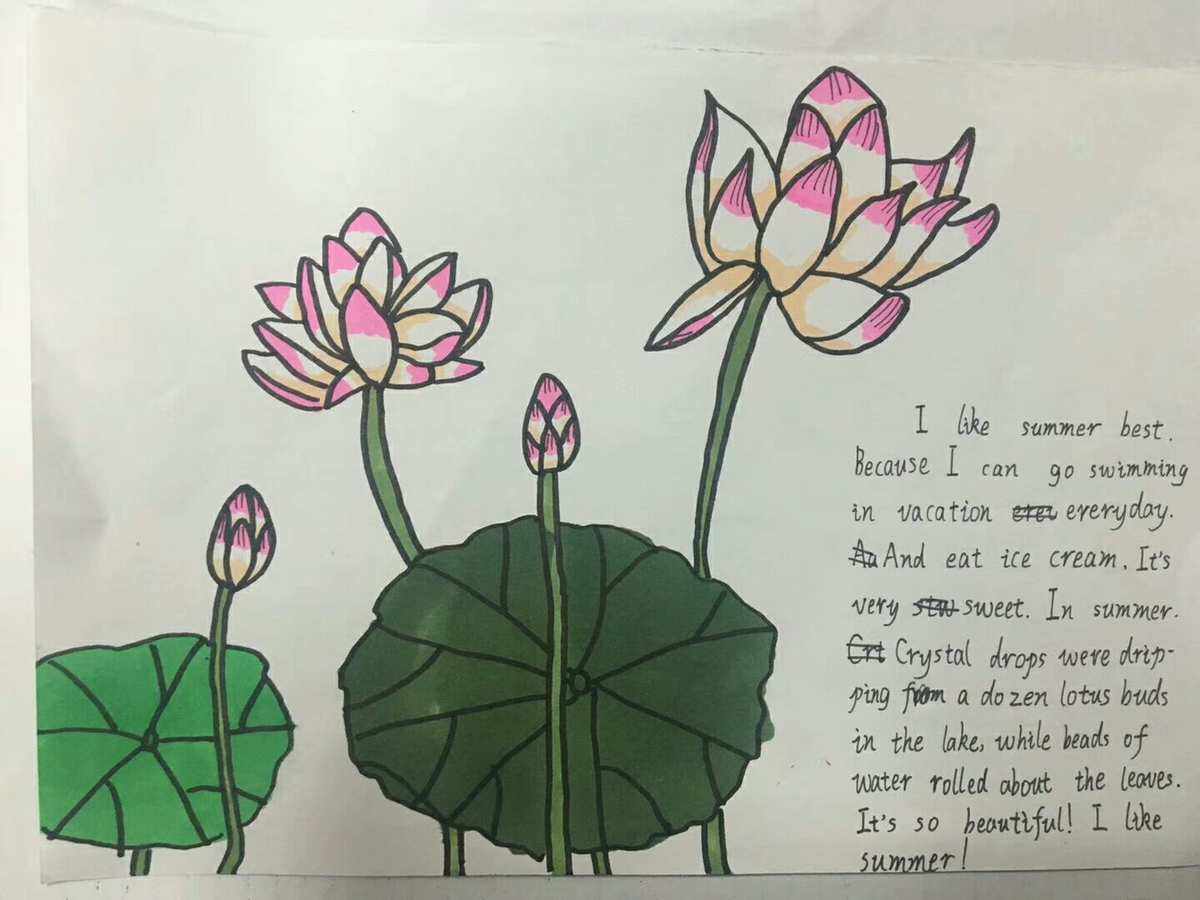 I like summer best.
Because I can go swimming
in vacation everyday.
And eat ice cream. It's
very sweet. In summer.
Crystal drops were drip-
ping from a dozen lotus buds
in the lake, while beads of
water rolled about the leaves.
It's so beautiful! I like
summer!